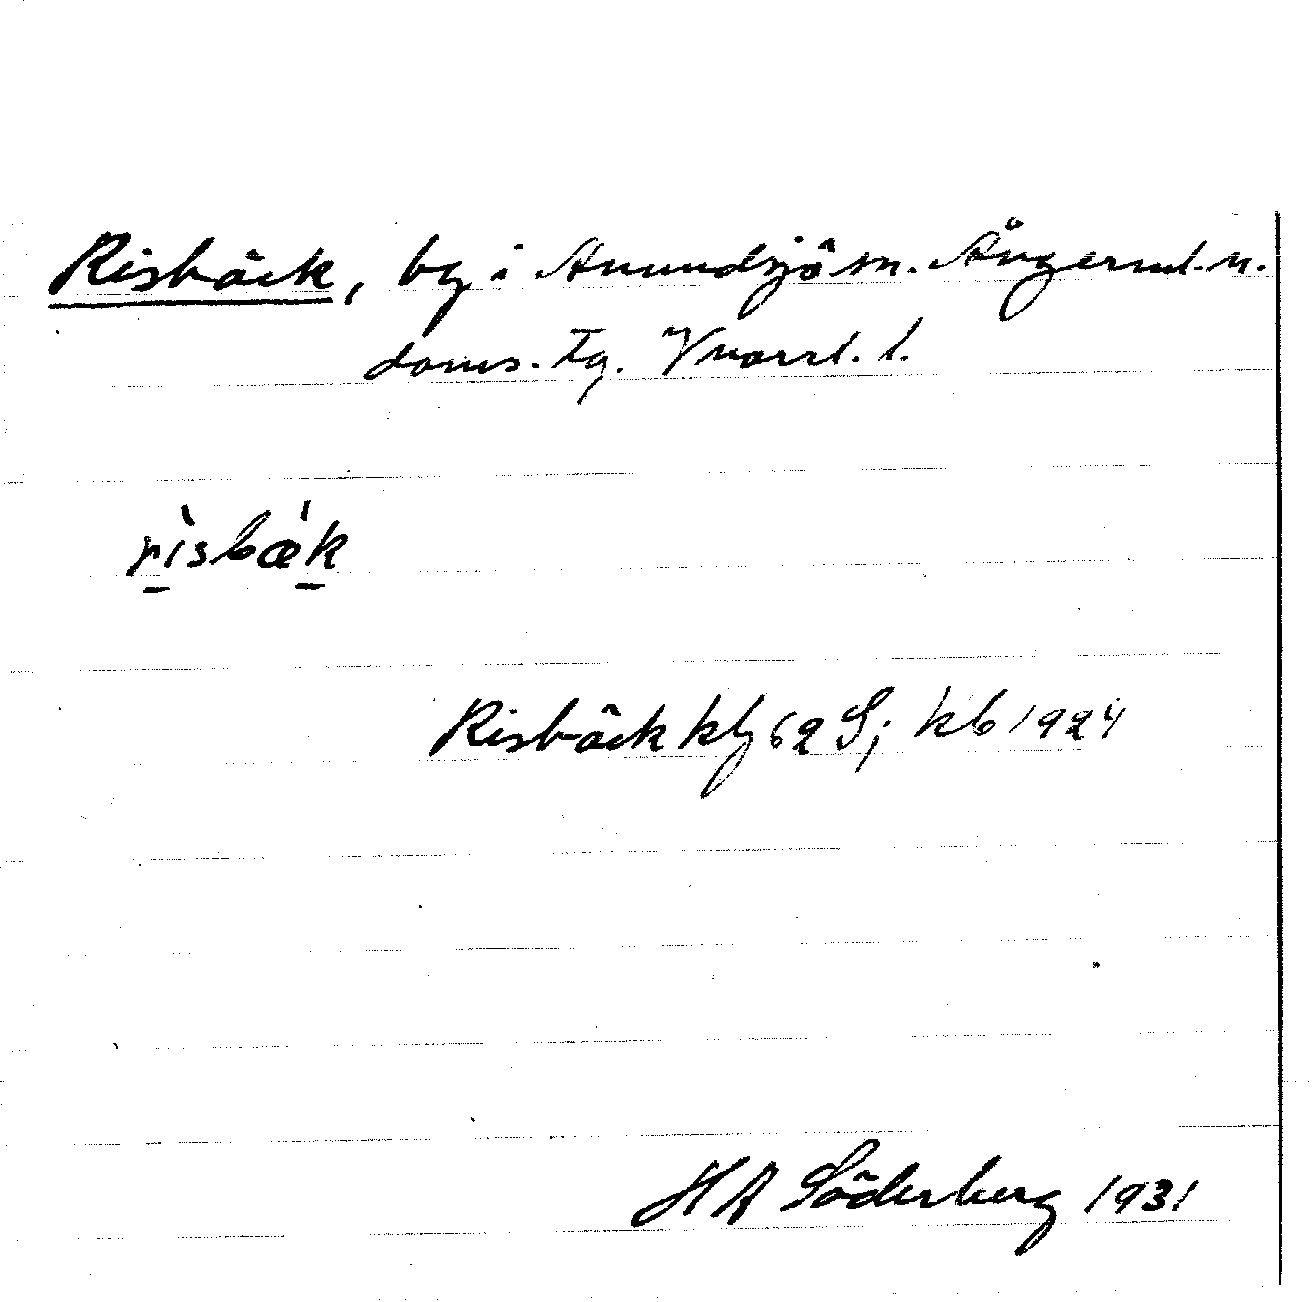 Risbäck, by i Anundsjö sn. Ångerml. n.
doms. tg. Vnorrl. l.
rìsbǽk
Risbäck kby 62 S; kb 1924
H A Söderberg 1931